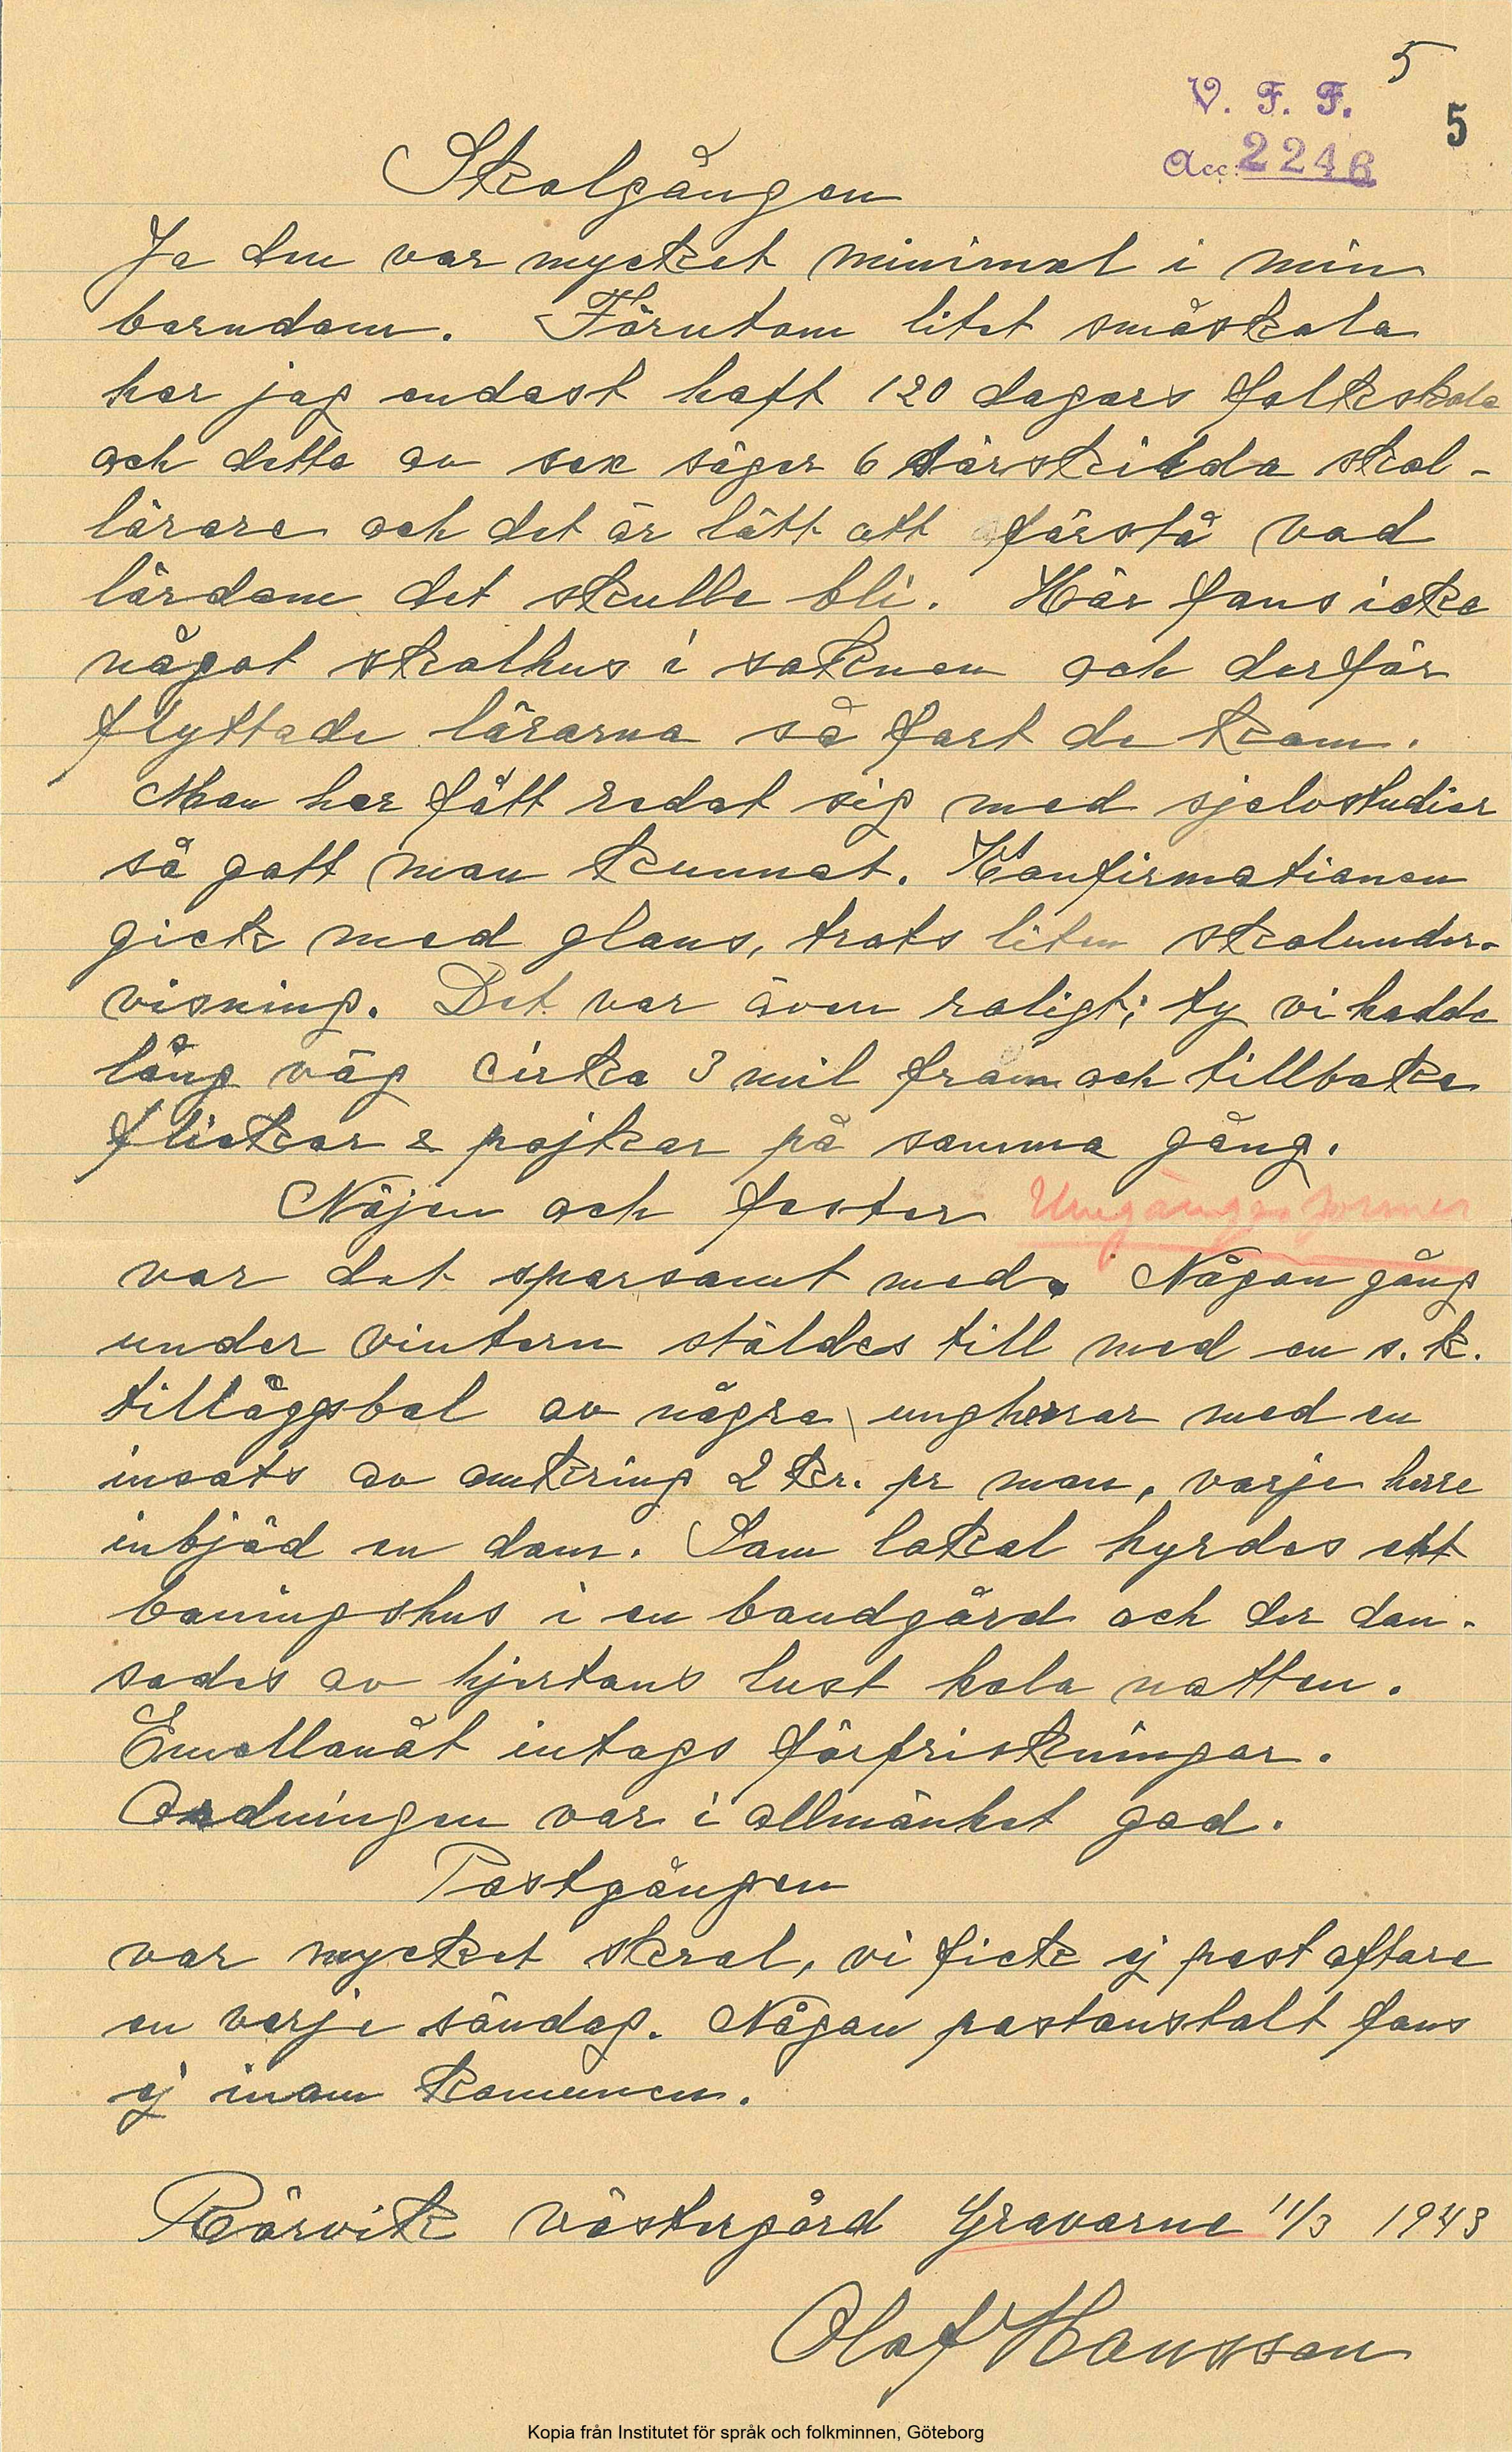 5
V. F. F.
5
Acc: 2246
Skolgången
Ja den var mycket minimal i min
barndom. Förutom litet småskola
har jag endast haft 120 dagars folkskola
och detta av sex säger 6 särskilda skol-
lärare och det är lätt att förstå vad
lärdom det skulle bli. Här fans icke
något skolhus i soknen och derför
flyttade lärarna så fort de kom.
Man har fått redat sig med sjelvstudier
så gott man kunnat. Konfirmationen
gick med glans, trots liten skolunder-
visning. Det var även roligt; ty vi hadde
lång väg cirka 3 mil fram och tillbaka
flickor & pojkar på samma gång.
Nöjen och fester Umgängesformer
var det sparsamt med. Någon gång
under vintern stäldes till med en s.k.
tilläggsbal av några ungherrar med en
insats av omkring 2 kr. pr man, varje herre
inbjöd en dam. Som lokal hyrdes ett
boningshus i en bondgård och der dan-
sades av hjertans lust hela natten.
Emellanåt intogs förfriskningar.
Ordningen var i allmänhet god.
Postgången
var mycket skral, vi fick ej post oftare
en varje söndag. Någon postanstalt fans
ej inom komunen.
Rörvik västergård Gravarne 11/3 1943
Olof Hansson
Kopia från Institutet för språk och folkminnen, Göteborg